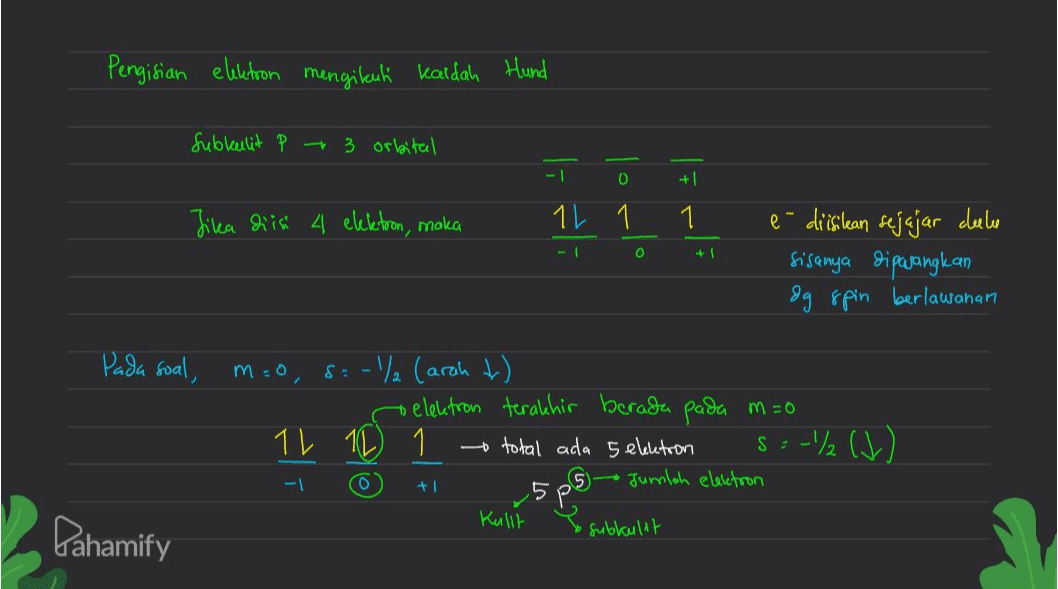 Pengisian elektron mengikuti kaidah Hund
Subkulit p → 3 orbital
-1 0 +1
Jika diisi 4 elektron, maka 1L 1 1 e⁻ diisikan sejajar dulu
-1 0 +1
sisanya dipasangkan
dg spin berlawanan
Pada soal, m=0, s=-1/2 (arah ↓)
elektron terakhir berada pada m=0
1L 1L 1 → total ada 5 elektron s=-1/2 (↓)
-1 0 +1
5p⁵ → Jumlah elektron
Kulit subkulit
Pahamify